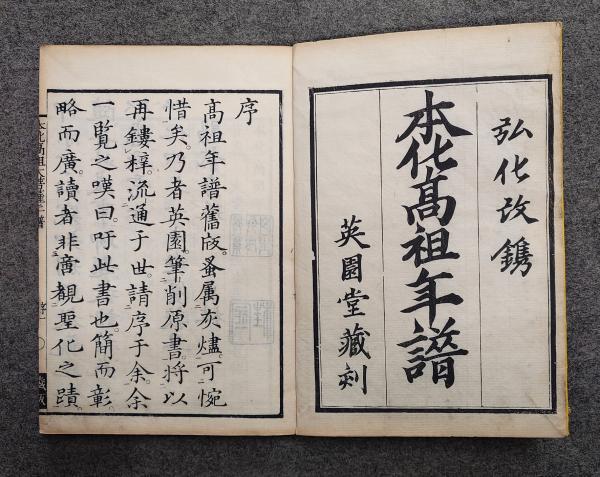 弘化改鐫
本化高祖年譜
英園堂藏刻
序
高祖年譜舊版。蚤属灰燼。可惋
惜矣。乃者英園。筆削原書。将以
再鏤梓。流通于世。請序于余。余
一覽之嘆曰。吁此書也。簡而彰。
略而廣。讀者非啻覩聖化之蹟。
序一